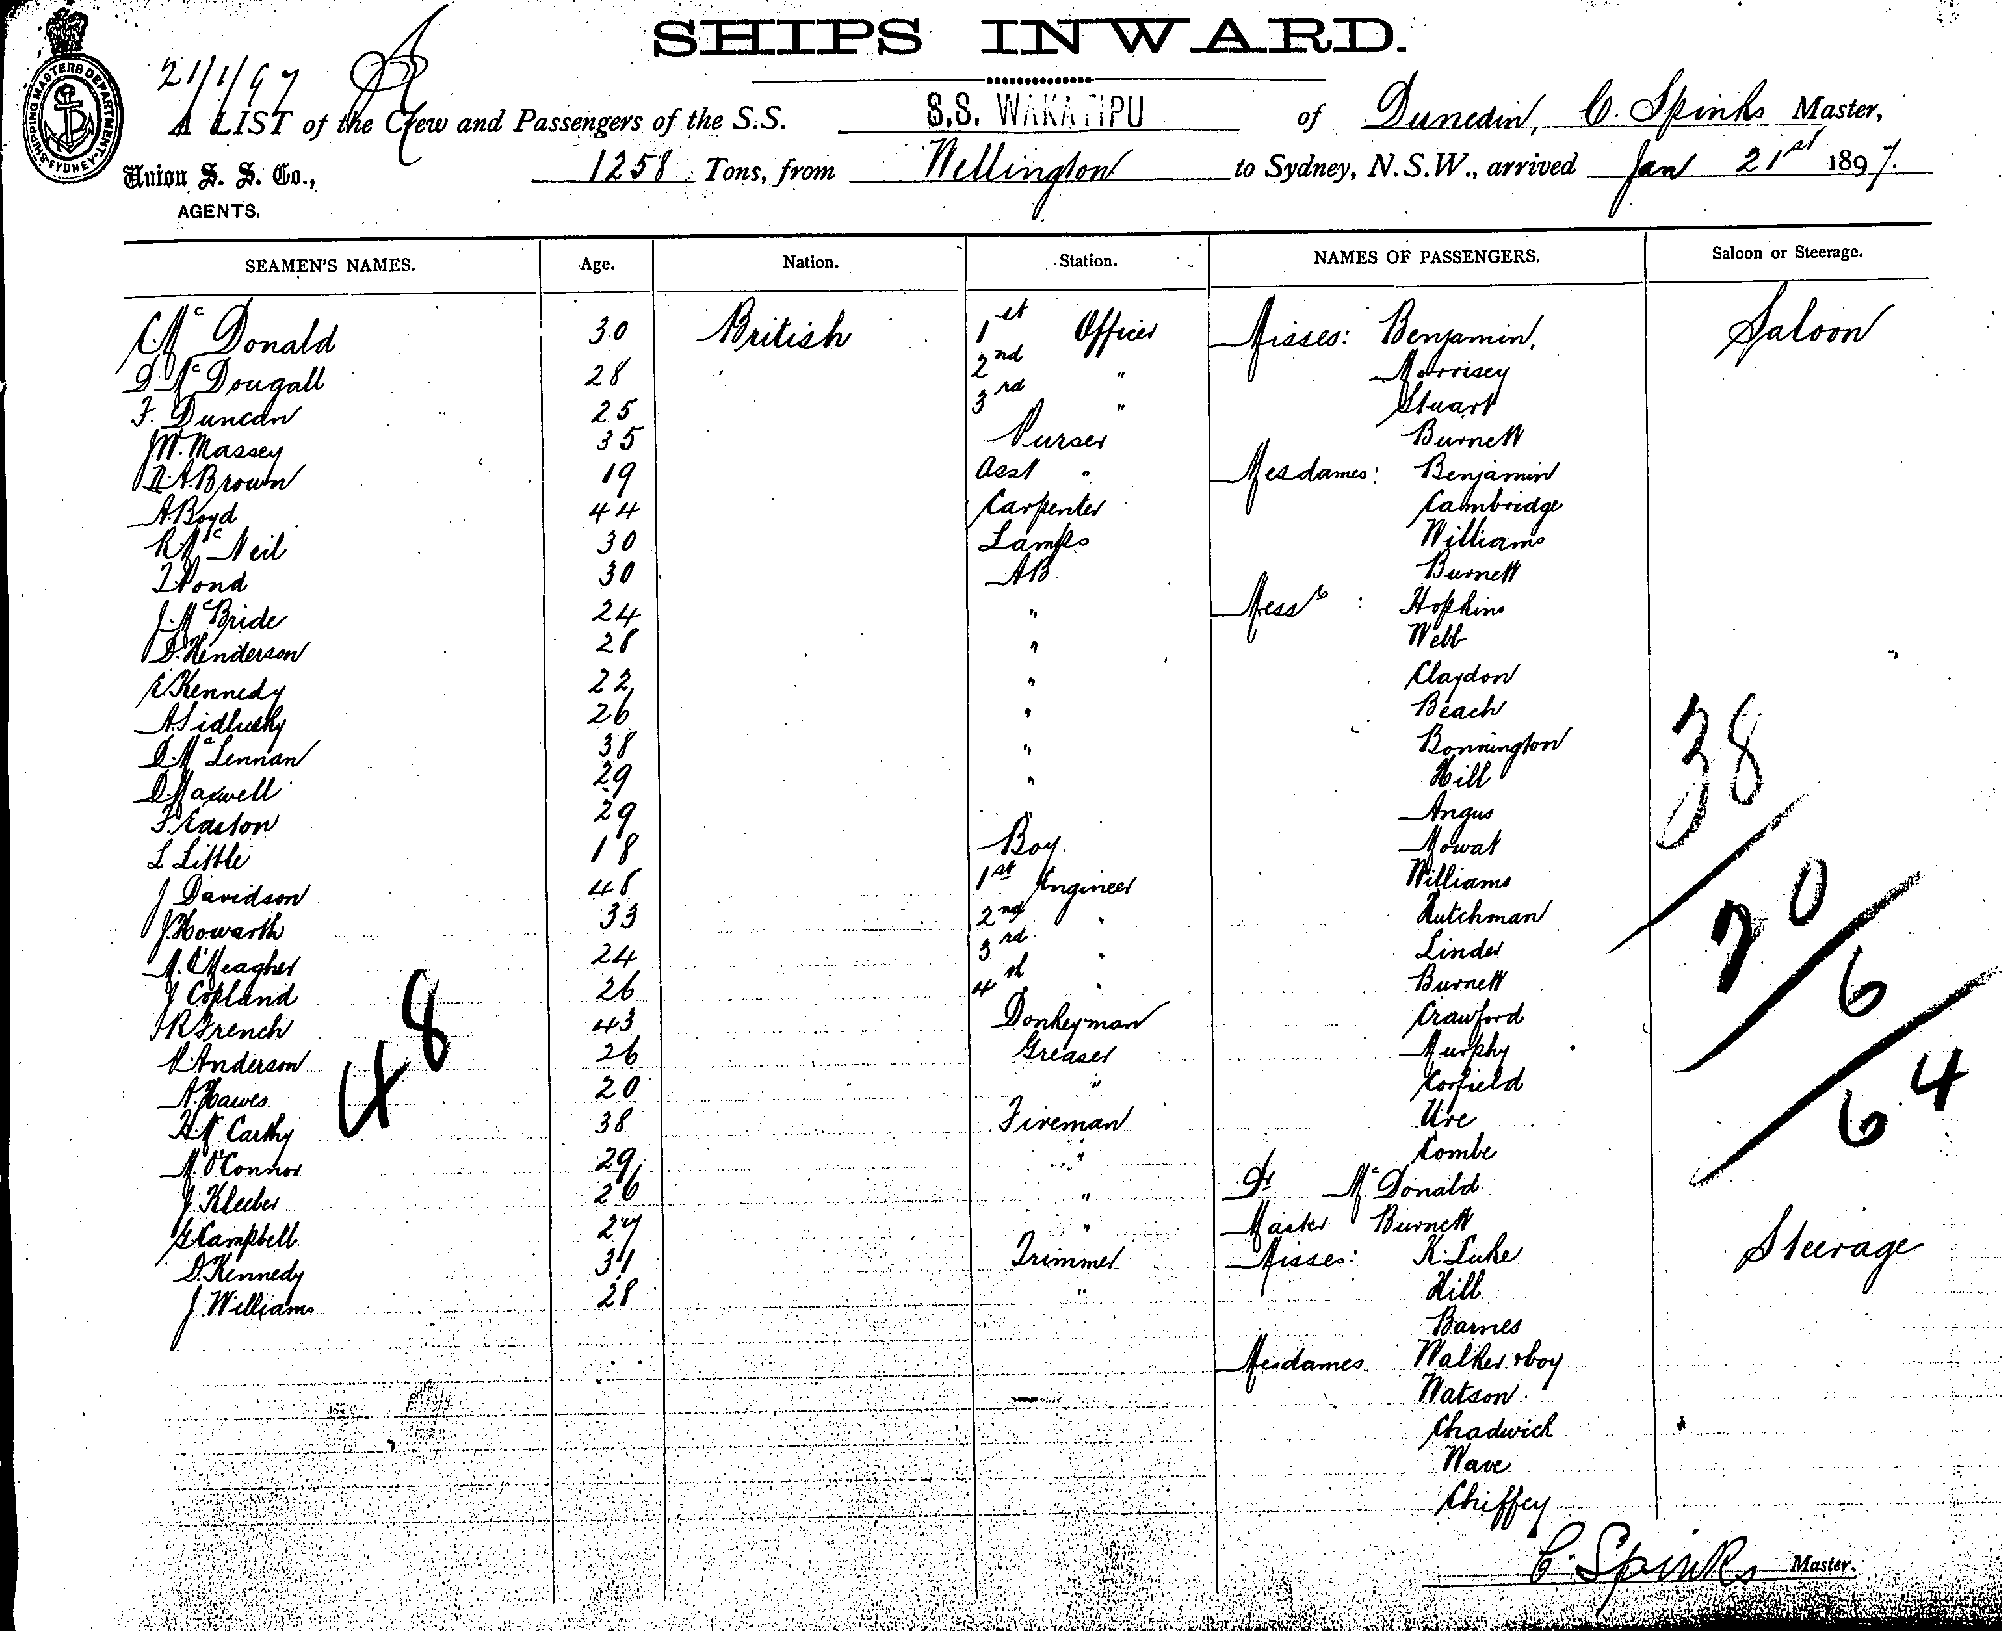 SHIPS INWARD.
21/1/97
A LIST of the Crew and Passengers of the S.S. S.S. WAKATIPU of Dunedin, C. Spinks Master,
Union S. S. Co., AGENTS. 1258 Tons, from Wellington to Sydney, N.S.W., arrived Jan 21st 1897.
SHIPPING MASTERS DEPARTMENT SYDNEY
SEAMEN'S NAMES. Age. Nation. Station. NAMES OF PASSENGERS. Saloon or Steerage.
C. McDonald 30 British 1st Officer Misses: Benjamin, Saloon
D. McDougall 28 2nd " Morrisey
F. Duncan 25 3rd " Stuart
J.W. Massey 35 Purser Burnett
R.A. Brown 19 Asst " Mesdames: Benjamin
A. Boyd 44 Carpenter Cambridge
R. McNeil 30 Lamps Williams
Pond 30 AB Burnett
J. McBride 24 " Messrs : Hopkins
D. Henderson 28 " Webb
E Kennedy 22 " Claydon
A. Sidlusky 26 " Beach
D. McLennan 38 " Bonnington
D. Maxwell 29 " Hill
F. Easton 29 " Angus
L Little 18 Boy Mowat
J Davidson 48 1st Engineer Williams
J. Howarth 33 2nd " Hutchman
M. O'Meagher 24 3rd " Linder
J Copland 26 4th " Burnett
R French 43 Donkeyman Crawford
R. Anderson 26 Greaser Murphy
A. Hawes 20 " Corfield
H. McCarthy 38 Fireman Ure
M. O'Connor 29 " Combe
J. Kleeber 26 " Dr McDonald
G Campbell 27 " Master Burnett
D. Kennedy 31 Trimmer Misses: K. Luke Steerage
J. Williams 28 " Hill
Barnes
Mesdames Walker & boy
Watson
Chadwick
Wave
Chiffey
48
38
20
6
64
C. Spinks Master.